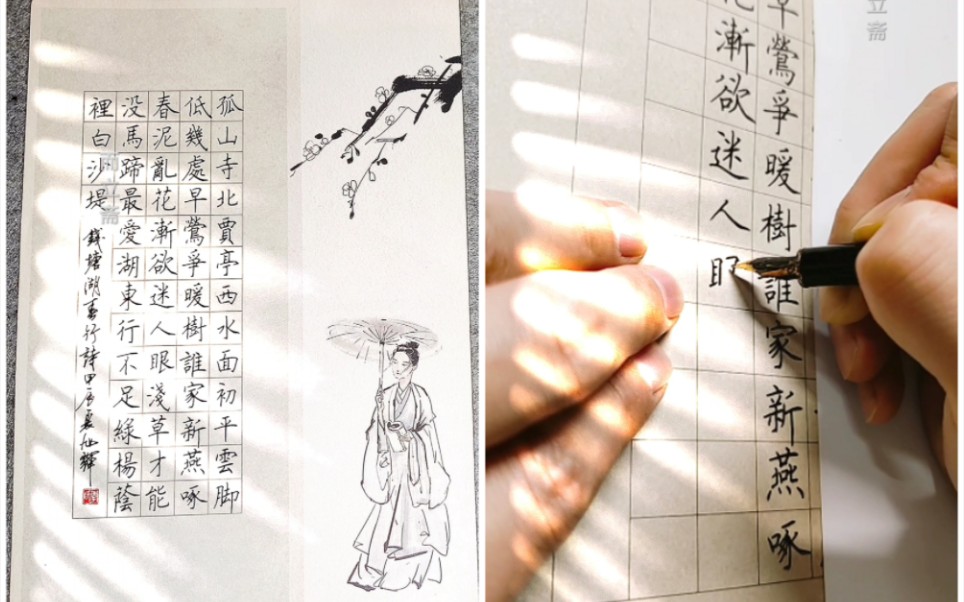 孤山寺北賈亭西水面初平雲脚
低幾處早鶯爭暖樹誰家新燕啄
春泥亂花漸欲迷人眼淺草才能
没馬蹄最愛湖東行不足綠楊蔭
裡白沙堤
錢塘湖春行詩甲辰夏
立斋
鶯爭暖樹誰家新燕啄
漸欲迷人
立斋